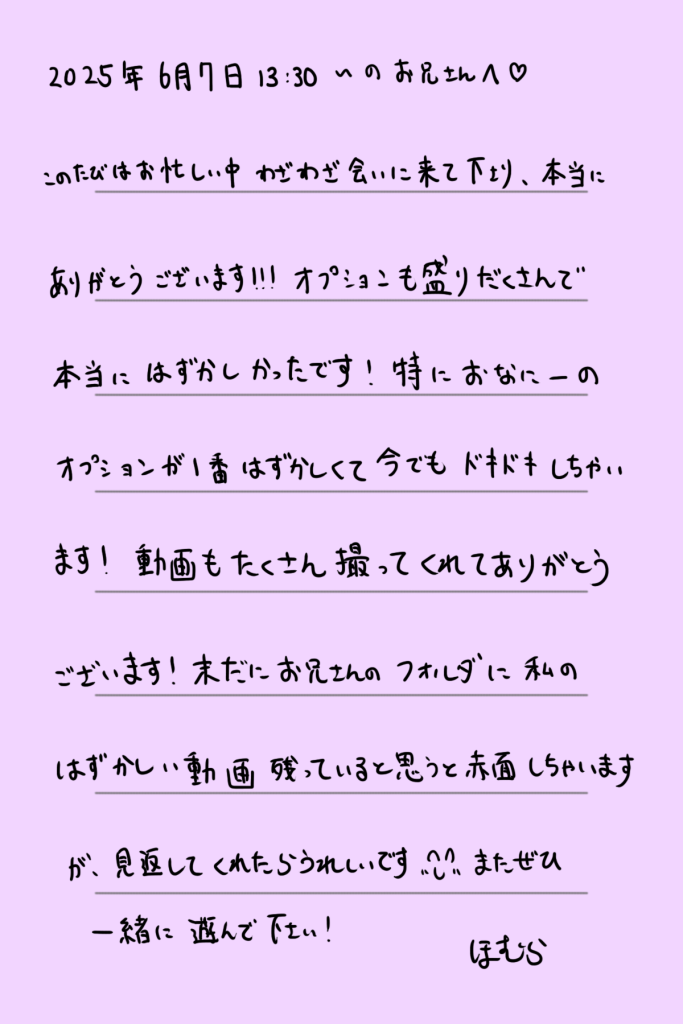 2025年 6月7日 13:30 〜 の お兄さんへ♡
このたびはお忙しい中 わざわざ会いに来て下さり、本当に
ありがとうございます!!! オプションも盛りだくさんで
本当に はずかしかったです! 特に おなにーの
オプションが1番 はずかしくて 今でも ドキドキ しちゃい
ます! 動画もたくさん撮ってくれてありがとう
ございます! 末だにお兄さんの フォルダに 私の
はずかしい動画 残っていると思うと赤面しちゃいます
が、見返してくれたらうれしいです またぜひ
一緒に 遊んで下さい!
ほむら